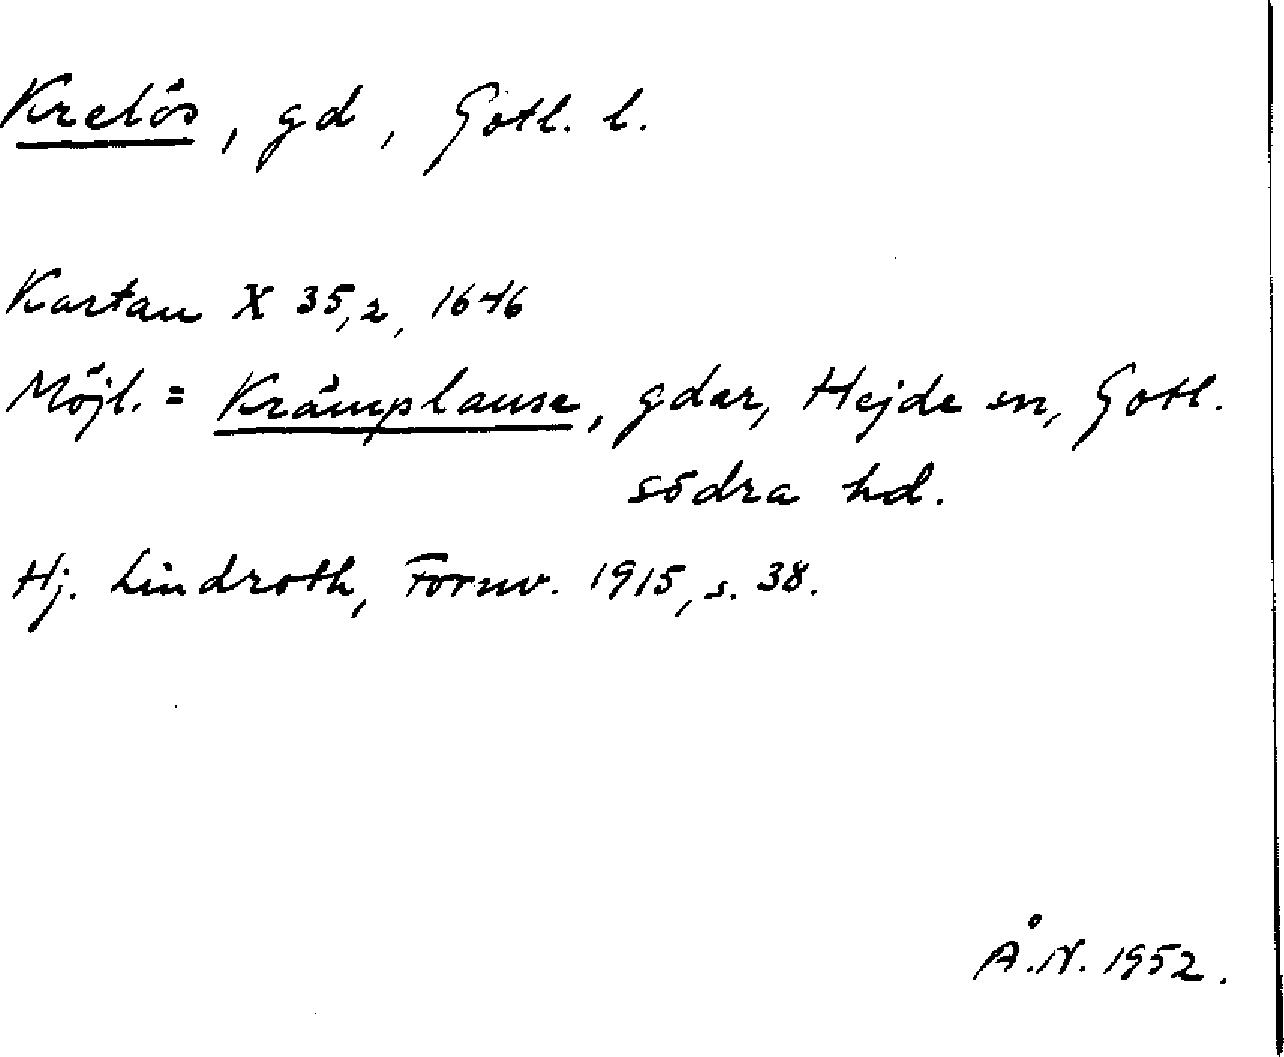 Krelös, gd, Gotl. l.
Kartan X 35,2, 1646
Möjl. = Krämplause, gdar, Hejde sn, Gotl.
södra hd.
Hj. Lindroth, Fornv. 1915, s. 38.
Å.N. 1952.